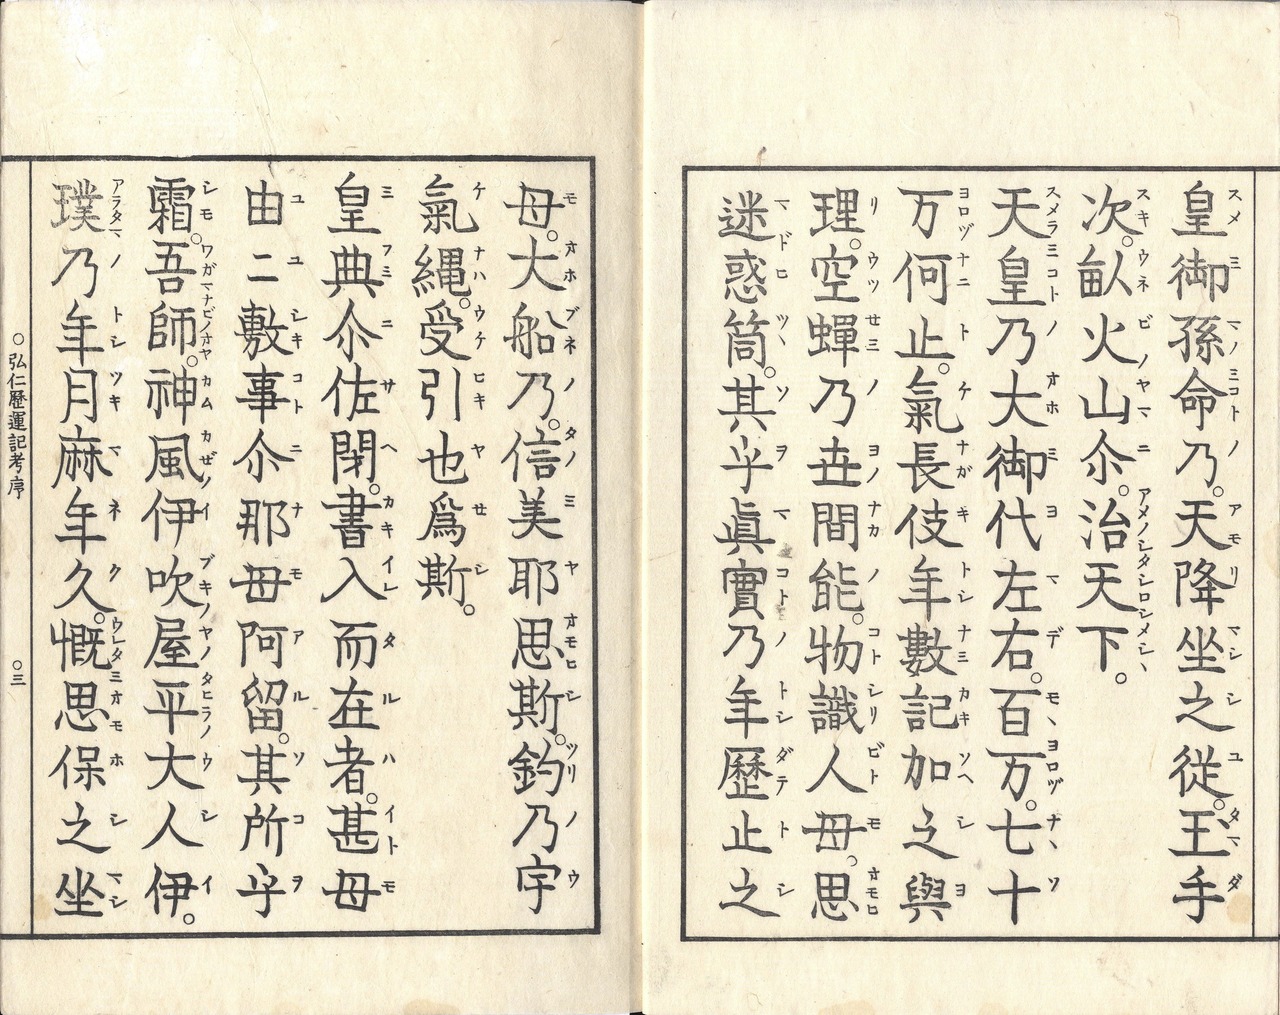 皇御孫命乃。天降坐之従。玉手
次。畝火山尒。治天下。
天皇乃大御代左右。百万。七十
万何止。氣長伎年數記加之與
理。空蟬乃世間能。物識人毋。思
迷惑筒。其乎眞實乃年歷止之
毋。大船乃。信美耶思斯。釣乃宇
氣縄。受引也爲斯。
皇典尒佐閇。書入而在者。甚毋
由二敷事尒那毋阿留。其所乎
霜。吾師。神風伊吹屋平大人伊。
璞乃年月麻年久。慨思保之坐
○弘仁歷運記考序 ○三